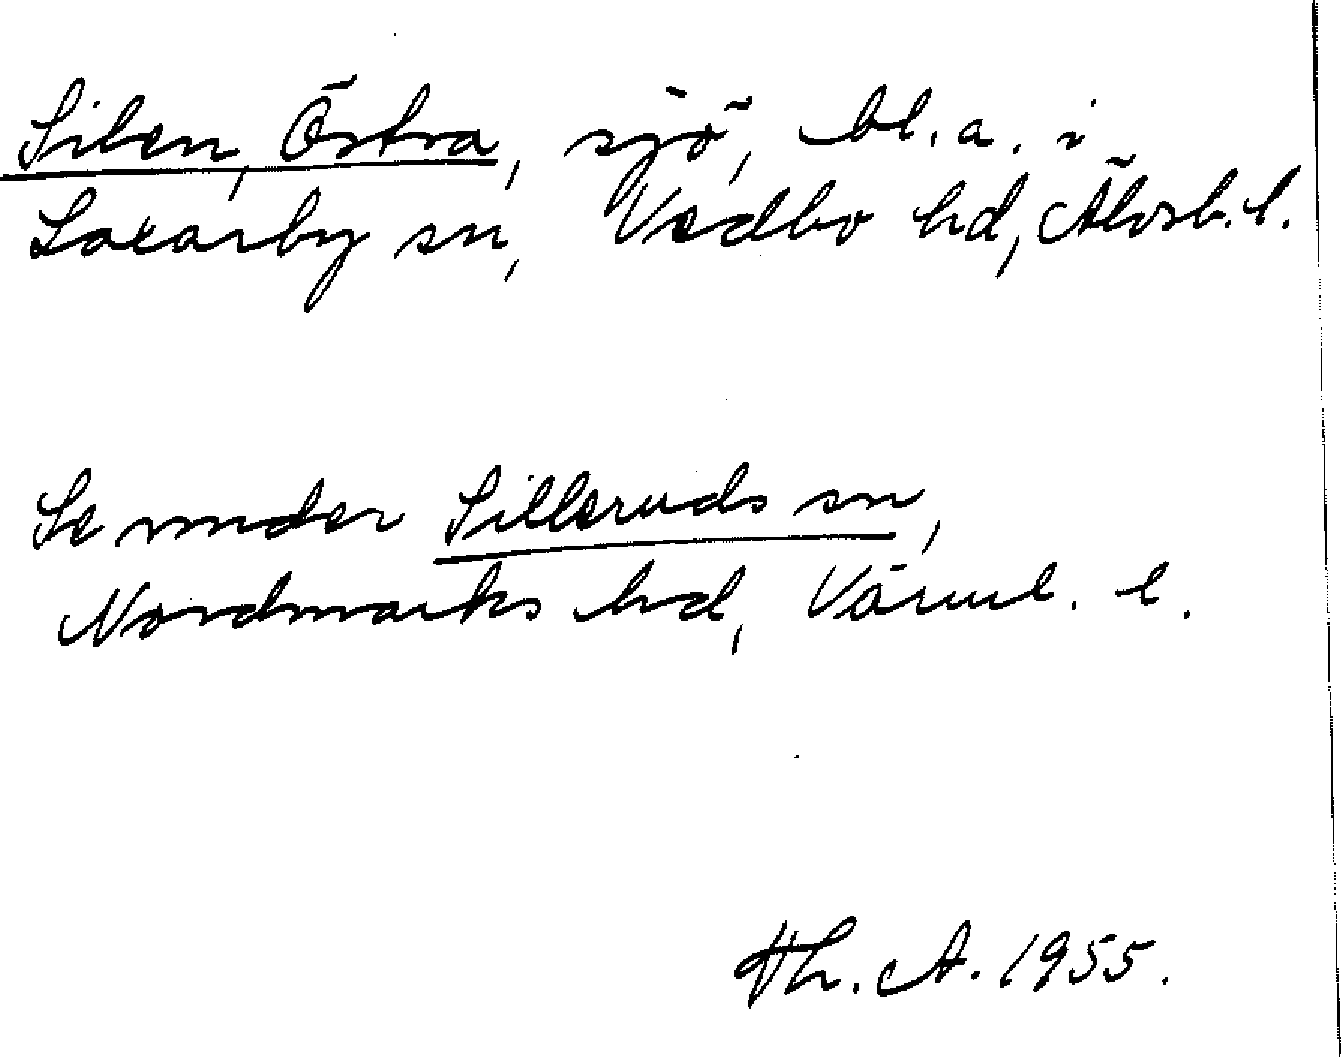 Silen, Östra, sjö, bl. a. i
Laxarby sn, Vedbo hd, Älvsb. l.
Se under Silleruds sn,
Nordmarks hd, Värml. l.
Th. A. 1955.